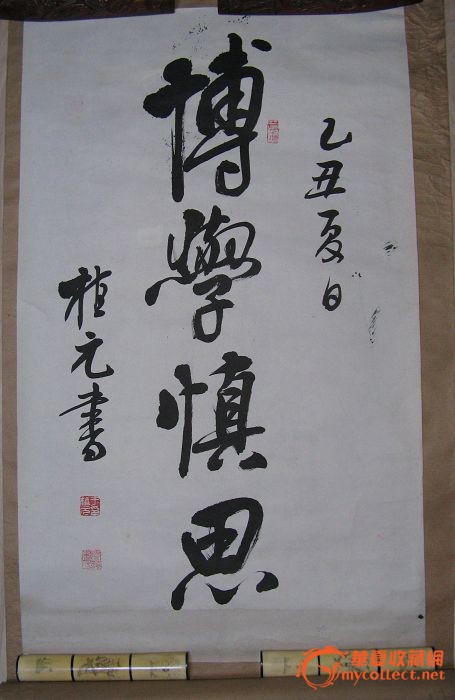 乙丑夏日
博學慎思
植元書
華夏收藏網
mycollect.net